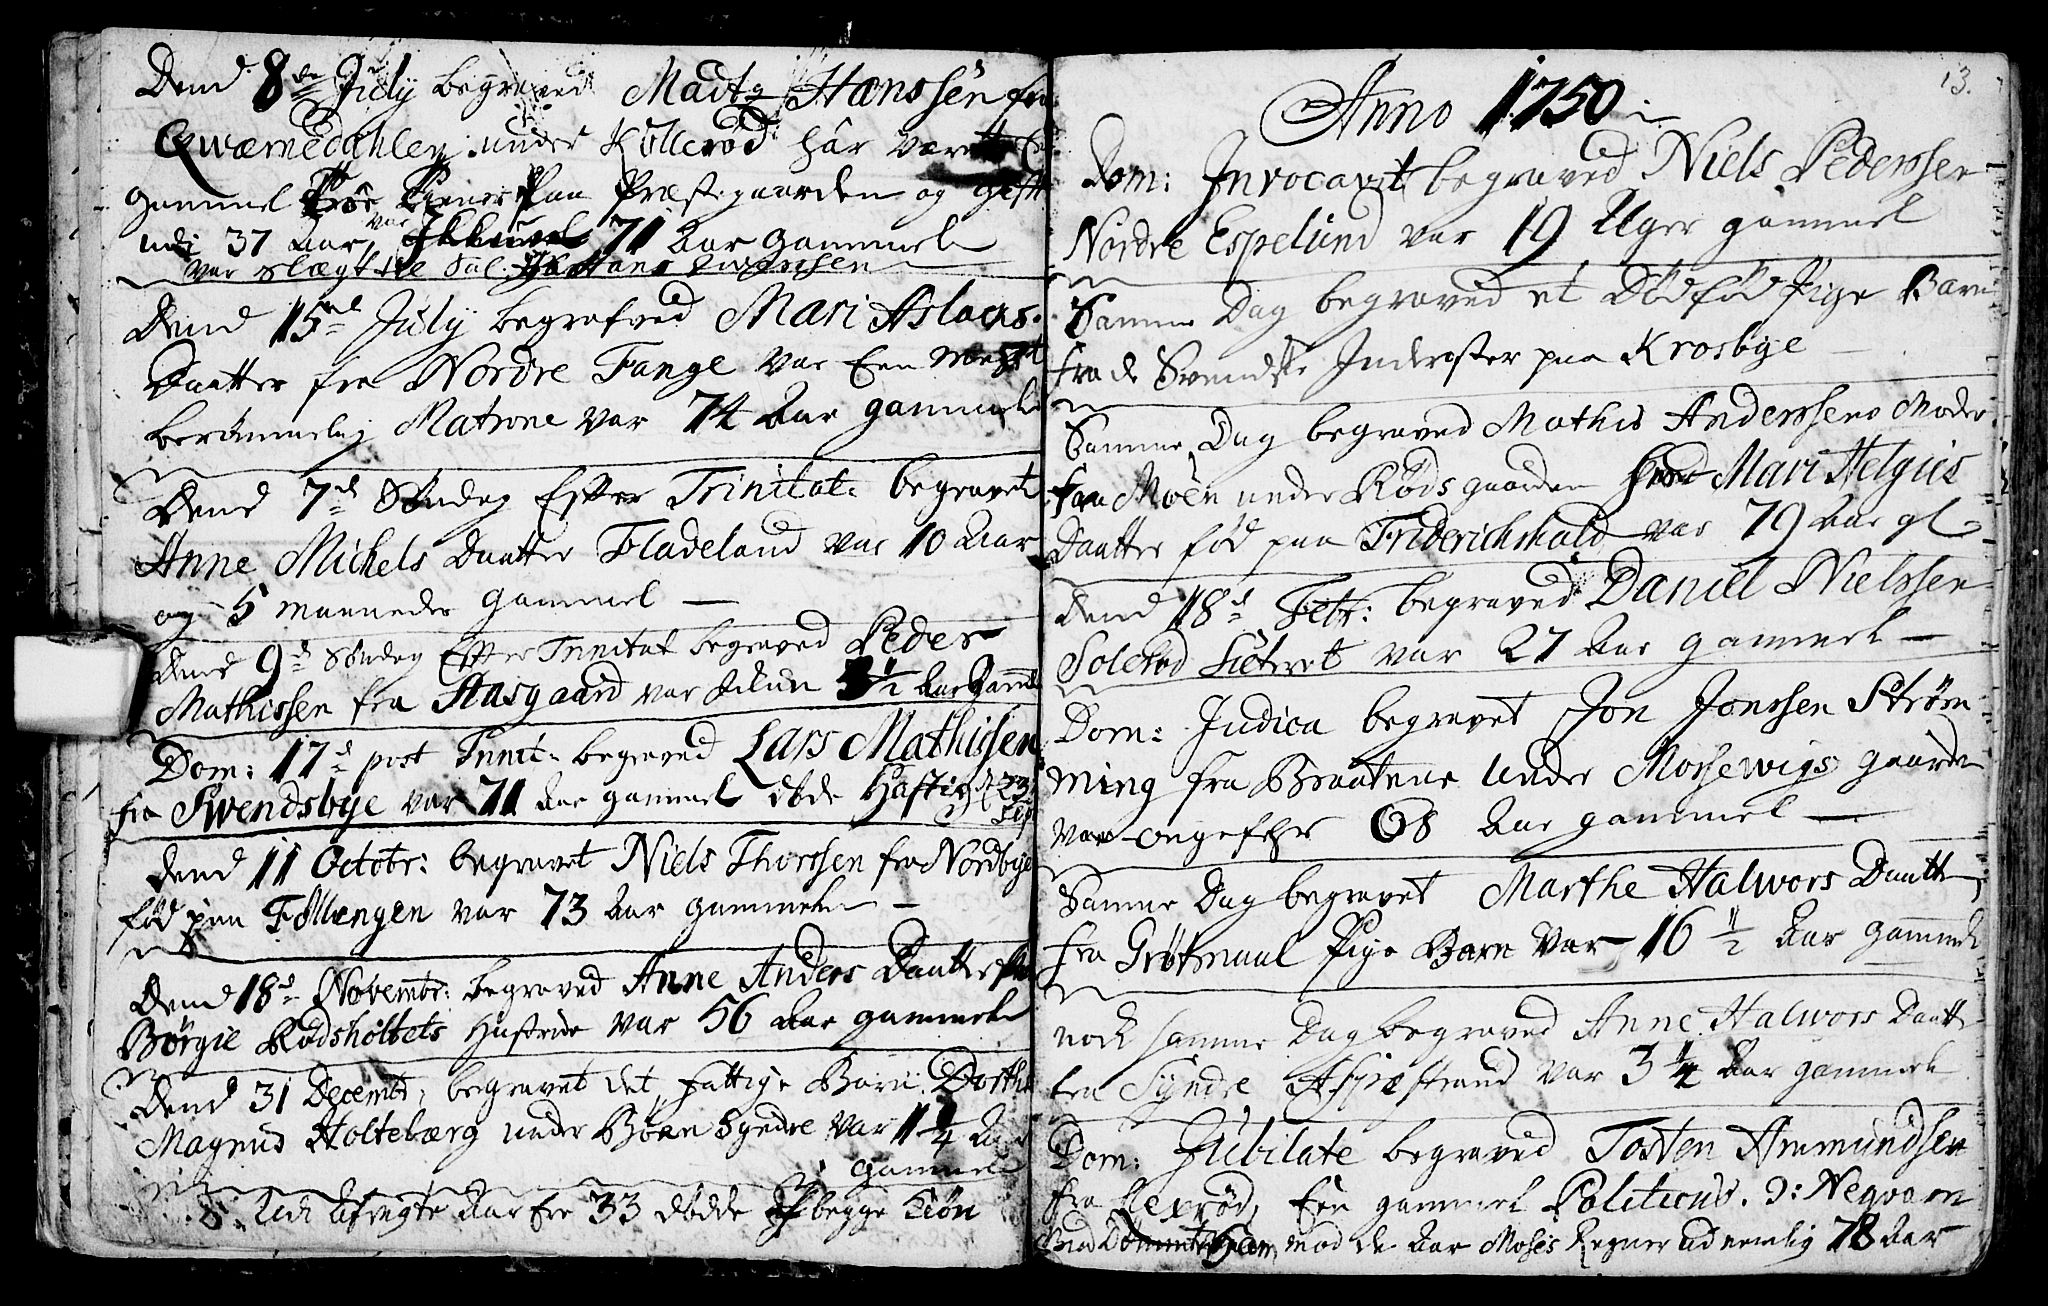 Dend 8de July begraved Madtz Hanssen fra
Qwærnedahlen under Kollerød har været en
gammel troe tiener Paa Præstegaarden og gift
udi 37 Aar, var 71 Aar gammel
var slægt til Sal. Hr Hans
Dend 15de July begrafved Mari Aslachs
Daatter fra Nordre Tange var Een meget
berømmelig Matrone var 74 Aar gammel
Dend 7de Søndag Efter Trinitat: begravet
Anne Michels Daatter Fladeland var 10 Aar
og 5 Maaneder gammel —
Dend 9de Søndag Efter Trinitat begraved Peder
Mathissen fra Aasgaard var 3½ Aar Gammel
Dom: 17de post Trinit: begraved Lars Mathissen
fra Swendsbye var 71 Aar gammel døde Hastig d. 23 Sept
Dend 11 Octobr: begravet Niels Thorssen fra Nordbye
fød paa Follængen var 73 Aar gammel —
Dend 18de Novembr: begraved Anne Anders Daatter fra
Børgie Rødsholtets Hustrue var 56 Aar gammel
Dend 31 Decembr, begravet det fattige Barn Dorthe
Magnus Holtebærg under Bøen Syndre var 1¼ Aar
gammel
Udi Afvigte Aar Ere 33 døde af begge Kiøn
13.
Anno 1750:
Dom: Invocavit begraved Niels Pederssen
Nordre Espelund var 19 Uger gammel
Samme Dag begraved et Dødfød Pige Barn
fra de Svendske Inderster paa Krosbye
Samme Dag begraved Mathis Anderssens Moder
fra Moen under Røds gaarden Mari Helgies
Daatter fød paa Friderichshald var 79 Aar gl
Dend 18de Febr: begraved Daniel Nielssen
Solerød var 27 Aar gammel —
Dom: Judica begravet Jon Jonssen Strøm
ming fra Braatene under Mossewigs gaarden
var ongefehr 68 Aar gammel —
Samme Dag begravet Marthe Halwors Daatter
fra Grøtmaal Pige Barn var 16½ Aar gammel
noch samme Dag begraved Anne Halwors Daatter
fra Syndre Aspestrand var 3¼ Aar gammel
Dom: Jubilate begraved Tosten Ammundsen
fra Lexrød, Een gammel Politicus. ɔ: Neqvam
mod de Aar Moses Regner ud nemlig 78 Aar